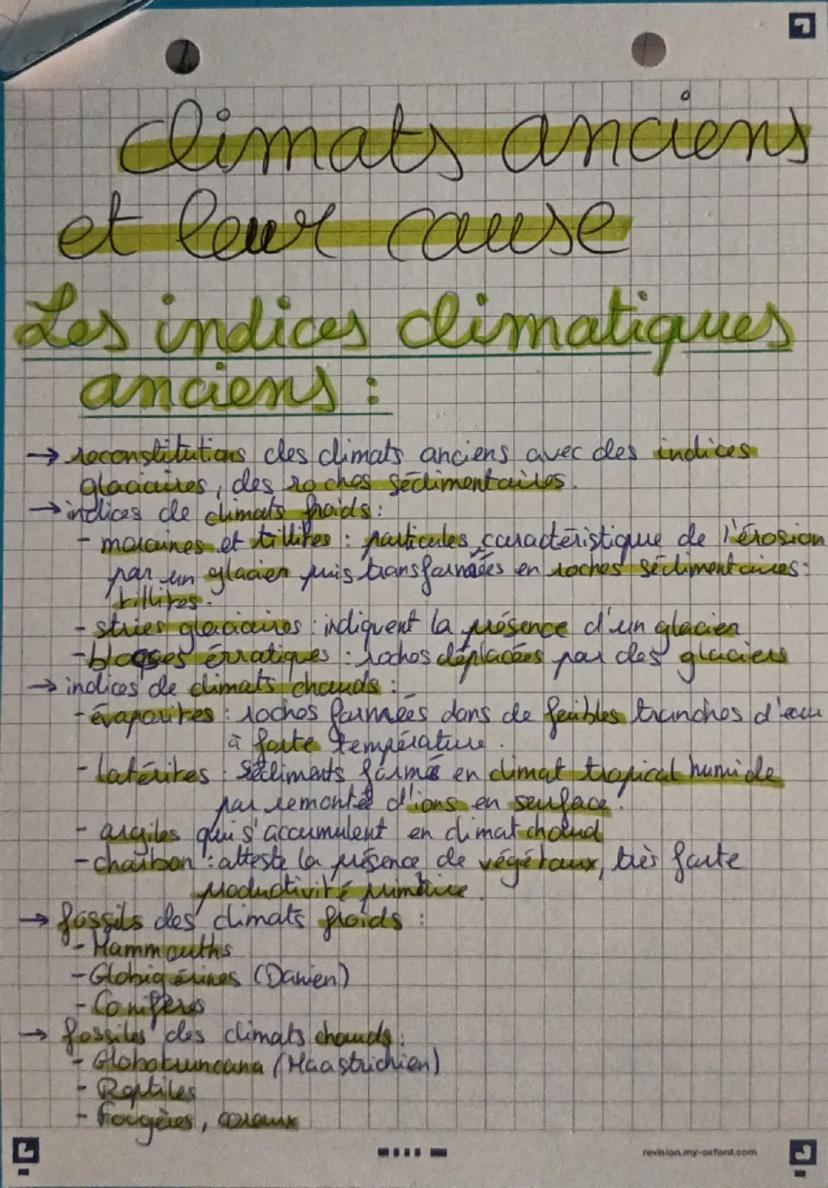 climats anciens
et leur cause
Les indices climatiques
anciens :
→ reconstitutions des climats anciens avec des indices
glaciaires, des roches sédimentaires.
→ indices de climats froids :
- moraines et tillites : particules caractéristique de l'érosion
par un glacier puis transformées en roches sédimentaires :
tillites.
- stries glaciaires : indiquent la présence d'un glacier
- blocs érratiques : roches déplacées par des glaciers
→ indices de climats chauds :
- évaporites : roches formées dans de faibles tranches d'eau
à forte température.
- latérites : sédiments formé en climat tropical humide
par remonté d'ions en surface.
- argiles qui s'accumulent en climat chaud
- charbon : atteste la présence de végétaux, très forte
productivité primaire.
→ fossils des climats froids :
- Mammouths
- Globigérines (Danien)
- Conifères
→ fossiles des climats chauds :
- Globotruncana (Maastrichien)
- Reptiles
- Fougères, coraux
revision.my-oxford.com